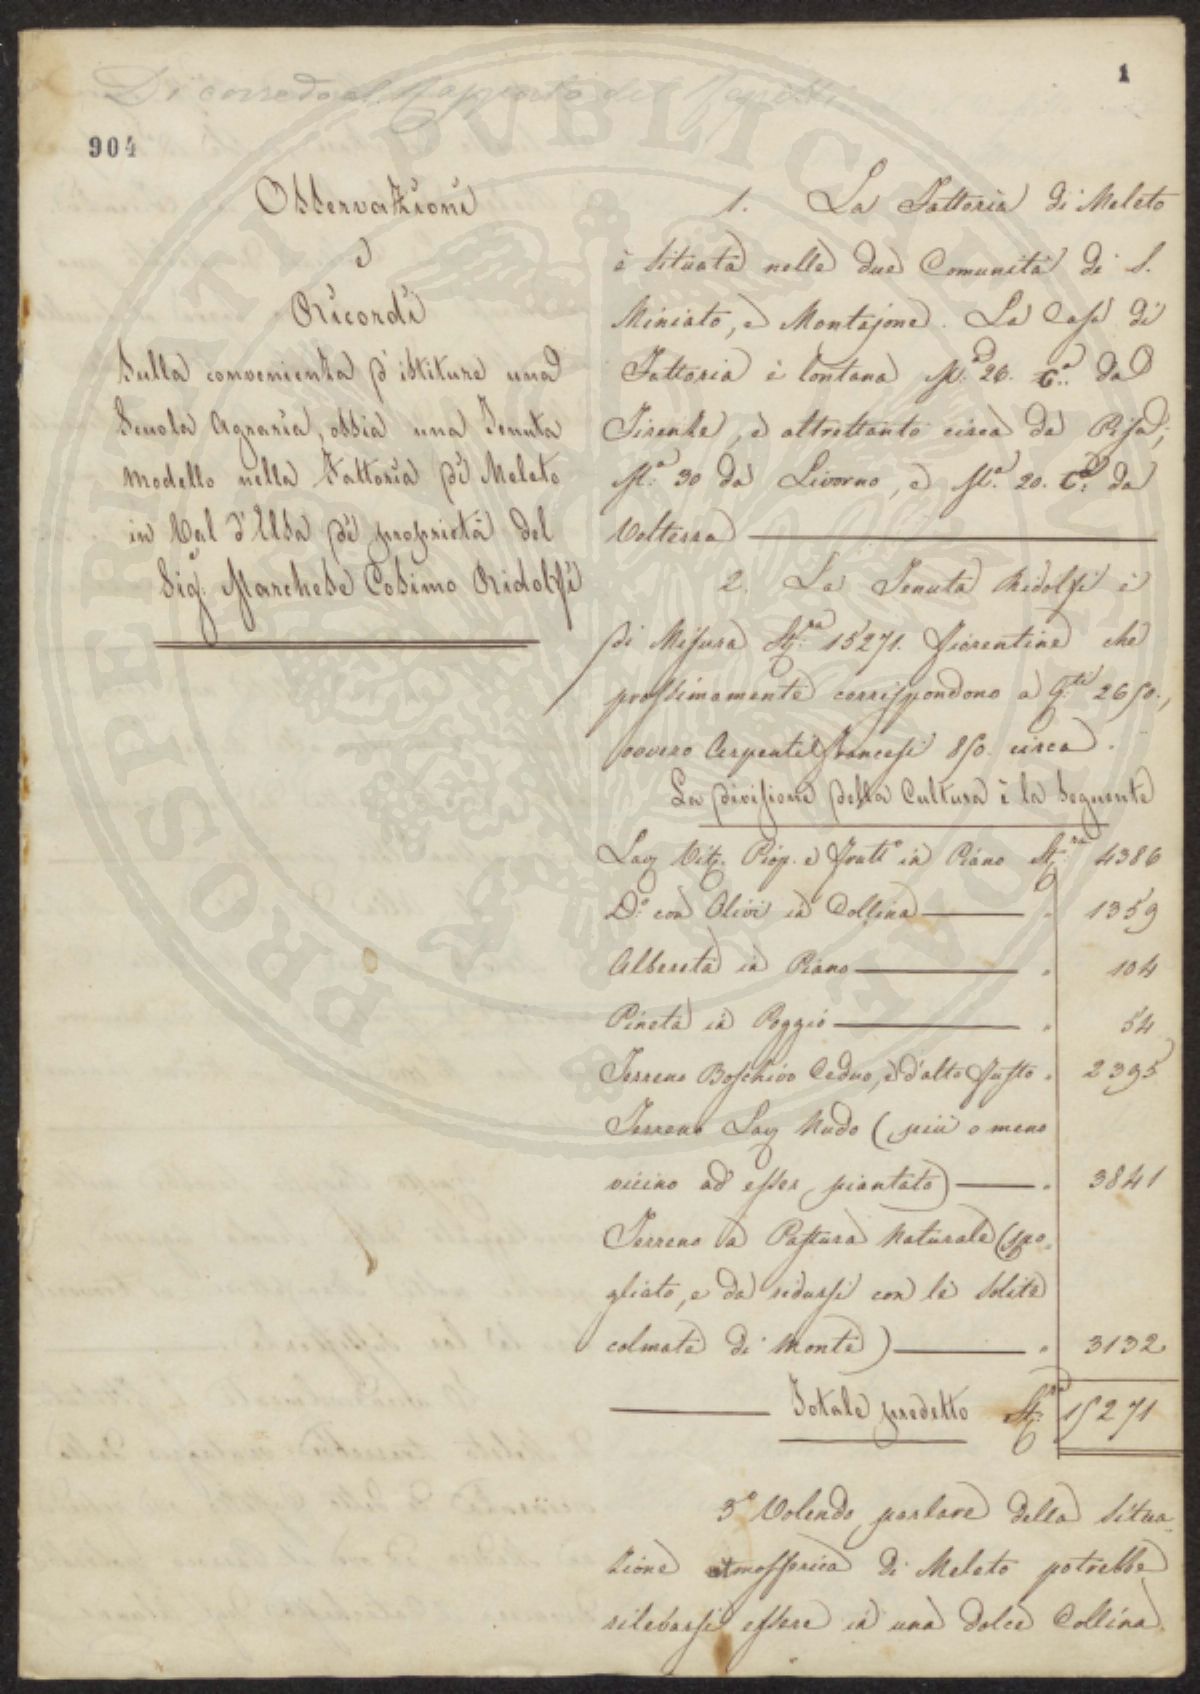 1
Di corredo al Rapporto del
904
Osservazioni
e
Ricordi
Sulla convenienza d'istituire una
Scuola Agraria, ossia una Tenuta
modello nella Fattoria di Meleto
in Val d'Elsa di proprietà del
Sig.r Marchese Cosimo Ridolfi
1. La Fattoria di Meleto
è situata nelle due Comunità di S.
Miniato, e Montajone. La Casa di
Fattoria è lontana M.a 26. C.a da
Firenze, e altrettanto circa da Pisa;
M.a 30 da Livorno, e M.a 20. C.a da
Volterra
2. La Tenuta Ridolfi è
di Misura St.ra 15271. fiorentine che
prossimamente corrispondono a Q.ti 2650.,
ovvero Arpenti Francesi 850. circa.
La divisione della Cultura è la seguente
Lav. Vit. Piop. e Frutt.o in Piano St.ra 4386
D.o con Olivi in Collina " 1359
Albereta in Piano " 104
Pineta in Poggio " 54
Terreno Boschivo Ceduo, e d'alto fusto " 2395
Terreno Lav. Nudo (più o meno
vicino ad esser piantato) " 3841
Terreno a Pastura Naturale (spo-
gliato, e da ridursi con le solite
colmate di Monte) " 3132
Totale predetto St.ra 15271
3.o Volendo parlare della situa-
zione atmosferica di Meleto potrebbe
rilevarsi essere in una dolce Collina
PROSPERITATI PVBLICAE AVGENDAE